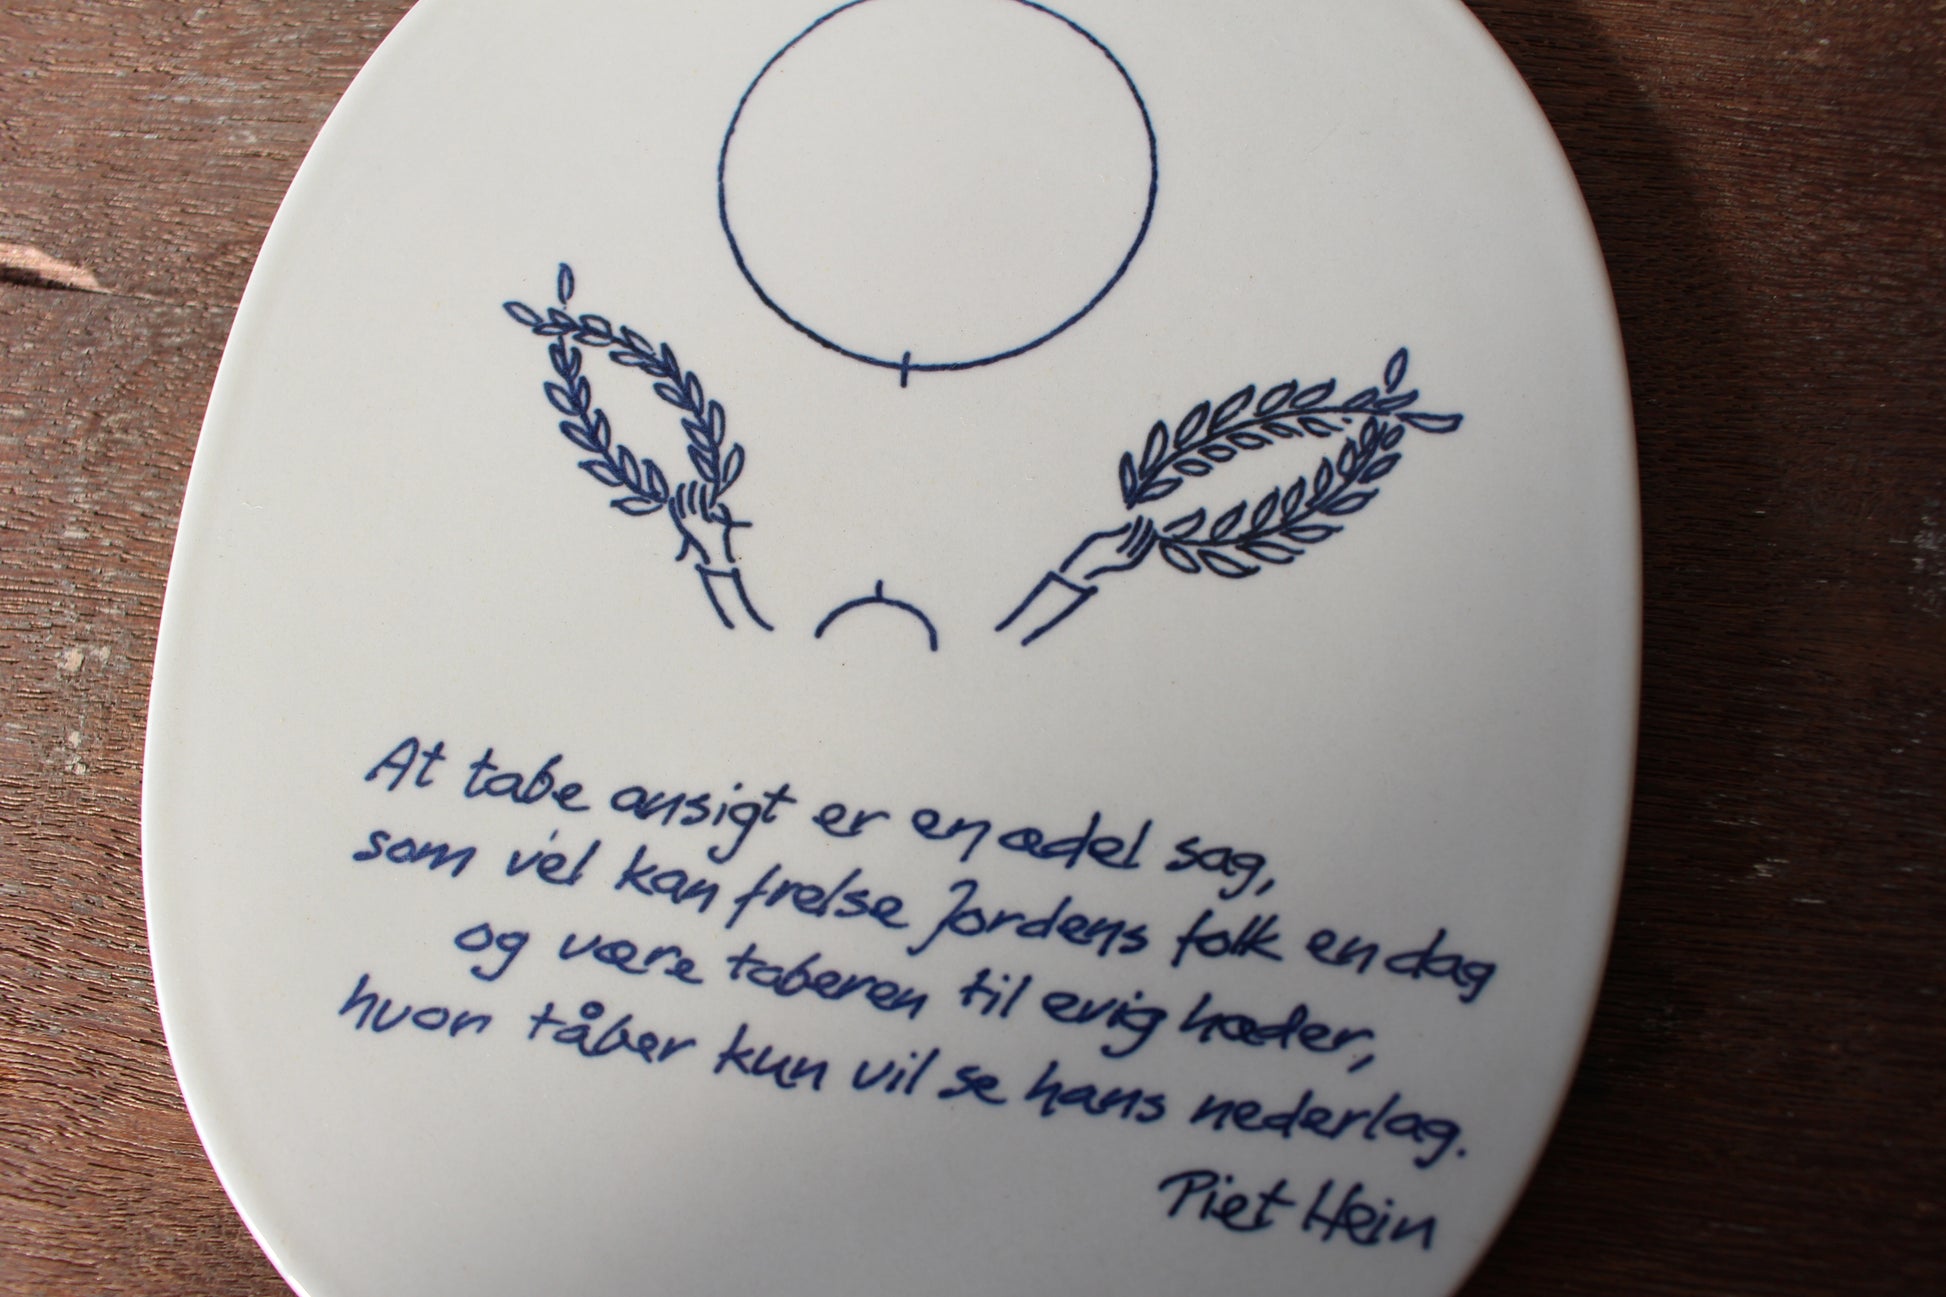 At tabe ansigt er en ædel sag,
som vel kan frelse Jordens folk en dag
og være taberen til evig hæder,
hvor tåber kun vil se hans nederlag.
Piet Hein